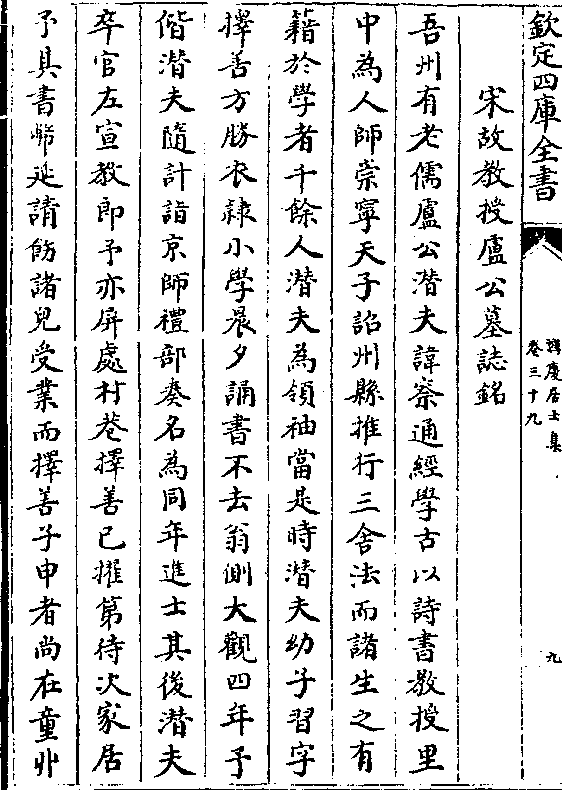 欽定四庫全書
鴻慶居士集
卷三十九
九
宋故教授盧公墓誌銘
吾州有老儒盧公潜夫諱察通經學古以詩書教授里
中為人師崇寧天子詔州縣推行三舍法而諸生之有
籍於學者千餘人潜夫為領袖當是時潜夫幼子習字
擇善方勝衣隷小學晨夕誦書不去翁側大觀四年予
偕潜夫隨計詣京師禮部奏名為同年進士其後潜夫
卒官左宣教郎予亦屏處村巷擇善已擢第待次家居
予具書幣延請飭諸兒受業而擇善子申者尚在童丱